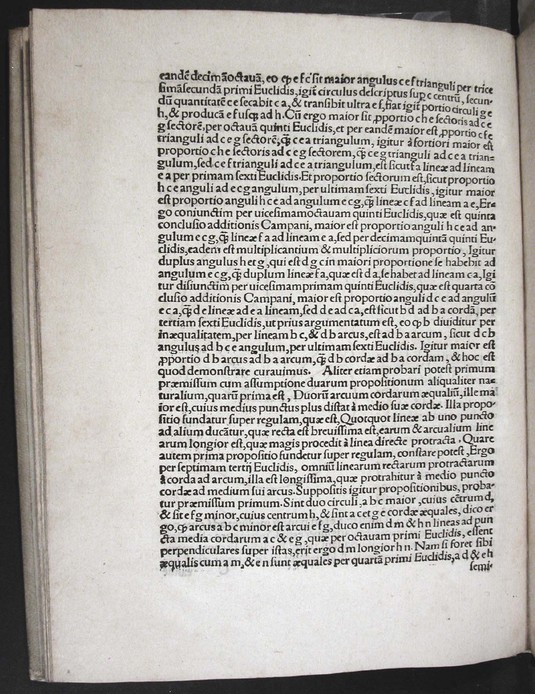 eandē decimāoctauā, eo ꝙ e f c sit maior angulus c e f trianguli per trice
simāsecundā primi Euclidis, igit̄ circulus descriptus sup e centrū, secun-
dū quantitatē e c secabit e a, & transibit ultra e f, fiat igit̄ portio circuli g c
h, & producā e f usqȝ ad h. Cū ergo maior sit ꝓportio c h e sectoris ad c e
g sectorē, per octauā quinti Euclidis, et per eandē maior est ꝓportio c f e
trianguli ad c e g sectorē, ꝙ̄ c e a triangulum, igitur à fortiori maior est
proportio c h e sectoris ad c e g sectorem, ꝙ̄ c e g trianguli ad c e a trian-
gulum, sed c e f trianguli ad c e a triangulum, est sicut f a lineæ ad lineam
e a per primam sexti Euclidis. Et proportio sectorum est, sicut proportio
h c e anguli ad e c g angulum, per ultimam sexti Euclidis, igitur maior
est proportio anguli h c e ad angulum e c g, ꝙ̄ lineæ c f ad lineam a e, Er-
go coniunctim per uicesimamoctauam quinti Euclidis, quæ est quinta
conclusio additionis Campani, maior est proportio anguli h c e ad an-
gulum e c g, ꝙ̄ lineæ f a ad lineam e a, sed per decimamquintā quinti Eu-
clidis, eadem est multiplicantium & multipliciorum proportio, Igitur
duplus angulus h e g, qui est d g c in maiori proportione se habebit ad
angulum e c g, ꝙ̄ duplum lineæ f a, quæ est d a, se habet ad lineam c a, Igi
tur disiunctim per uicesimamprimam quinti Euclidis, quæ est quarta cō
clusio additionis Campani, maior est proportio anguli d c e ad angulū
e c a, ꝙ̄ d e lineæ ad e a lineam, sed d e ad e a, est sicut b d ad b a cordā, per
tertiam sexti Euclidis, ut prius argumentatum est, eo ꝙ b diuiditur per
inæqualitatem, per lineam b c, & d b arcus, est ad b a arcum, sicut d c b
angulus ad b c e angulum, per ultimam sexti Euclidis. Igitur maior est
ꝓportio d b arcus ad b a arcum, ꝙ̄ d b cordæ ad b a cordam, & hoc est
quod demonstrare curauimus. Aliter etiam probari potest primum
præmissum cum assumptione duarum propositionum aliqualiter na-
turalium, quarū prima est, Duorū arcuum cordarum æqualiū, ille ma
ior est, cuius medius punctus plus distat à medio suæ cordæ. Illa propo-
sitio fundatur super regulam, quæ est, Quotquot lineæ ab uno puncto
ad alium ducātur, quæ recta est breuissima est, earum & arcualium line
arum longior est, quæ magis procedit à linea directe protracta. Quare
autem prima propositio fundetur super regulam, constare potest, Ergo
per septimam tertij Euclidis, omniū linearum rectarum protractarum
à corda ad arcum, illa est longissima, quæ protrahitur à medio puncto
cordæ ad medium sui arcus. Suppositis igitur propositionibus, proba-
tur præmissum primum. Sint duo circuli, a b c maior, cuius cētrum d,
& sit e f g minor, cuius centrum h, & sint a c et g e cordæ æquales, dico er
go, ꝙ arcus a b c minor est arcui e f g, duco enim d m & h n lineas ad pun
cta media cordarum a c & e g, quæ per octauam primi Euclidis, essent
perpendiculares super istas, erit ergo d m longior h n. Nam si foret sibi
æqualis cum a m, & e n sunt æquales per quartā primi Euclidis, a d & e h
semi-